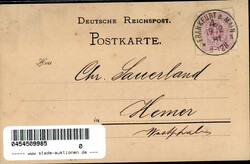 DEUTSCHE REICHSPOST.
POSTKARTE.
FRANKFURT A. MAIN
Herr
Chr. Sauerland
in
Hemer
Westphalen
0454509985
0
www.stade-auktionen.de